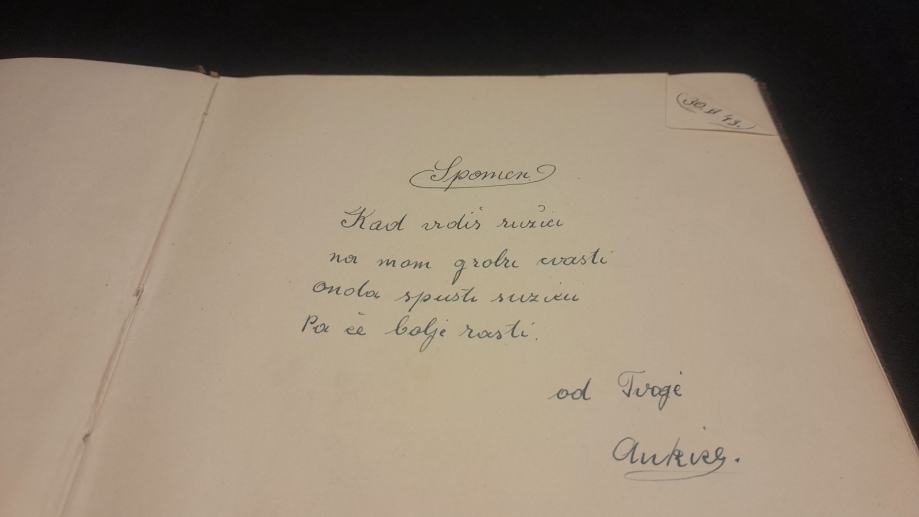 Spomen
Kad vidiš ružicu
na mom grobu cvasti
onda spusti suzicu
Pa će bolje rasti.
od Tvoje
Ankice.